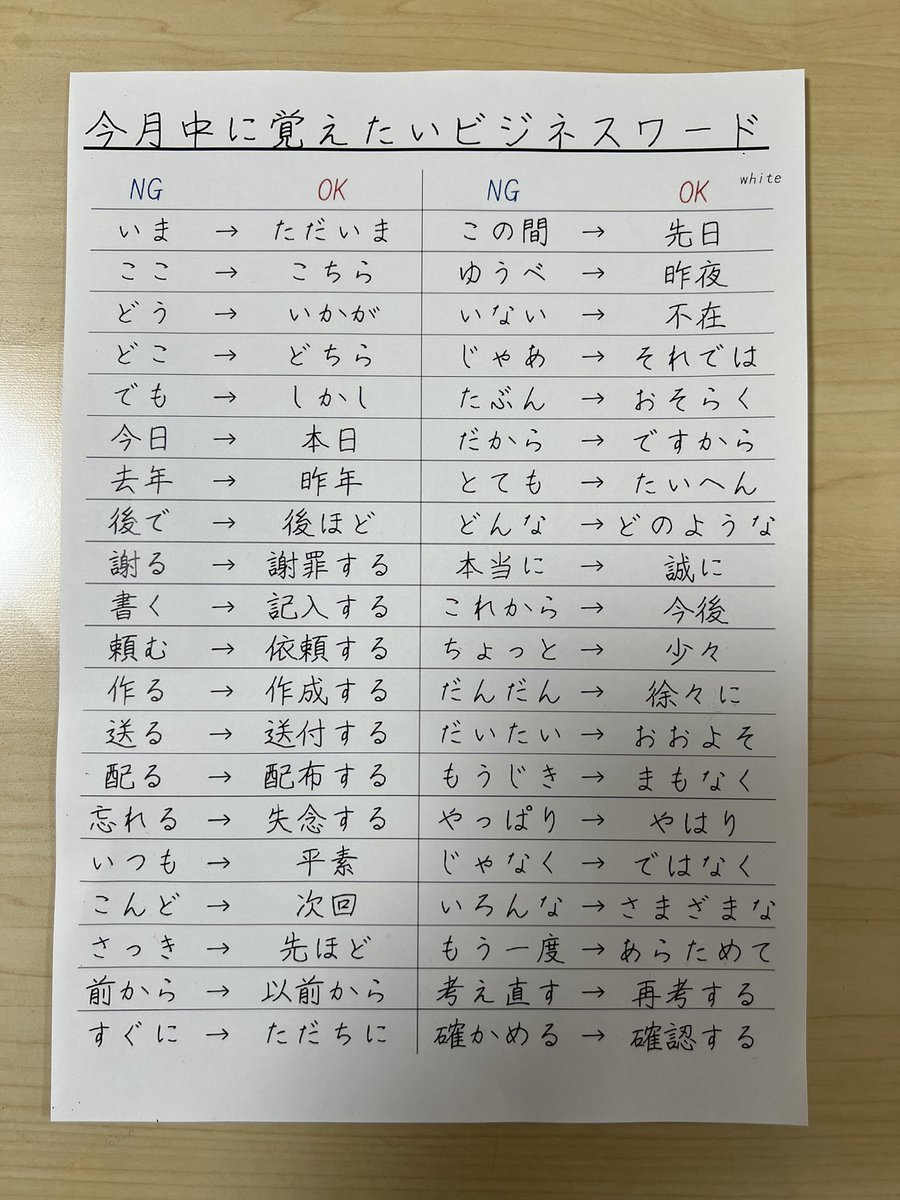 今月中に覚えたいビジネスワード
white
NG OK
いま → ただいま
ここ → こちら
どう → いかが
どこ → どちら
でも → しかし
今日 → 本日
去年 → 昨年
後で → 後ほど
謝る → 謝罪する
書く → 記入する
頼む → 依頼する
作る → 作成する
送る → 送付する
配る → 配布する
忘れる → 失念する
いつも → 平素
こんど → 次回
さっき → 先ほど
前から → 以前から
すぐに → ただちに
NG OK
この間 → 先日
ゆうべ → 昨夜
いない → 不在
じゃあ → それでは
たぶん → おそらく
だから → ですから
とても → たいへん
どんな → どのような
本当に → 誠に
これから → 今後
ちょっと → 少々
だんだん → 徐々に
だいたい → おおよそ
もうじき → まもなく
やっぱり → やはり
じゃなく → ではなく
いろんな → さまざまな
もう一度 → あらためて
考え直す → 再考する
確かめる → 確認する